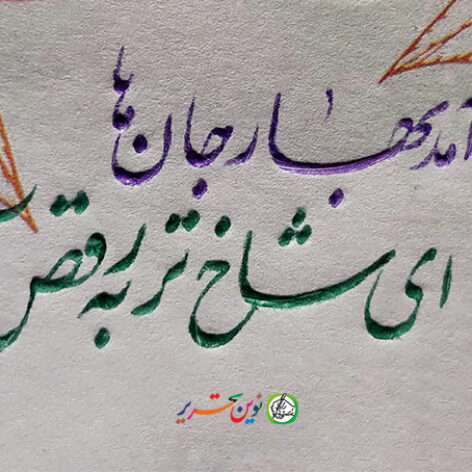 آمد بهار جان‌ها
ای شاخ تر به رقص
نوین تحریر